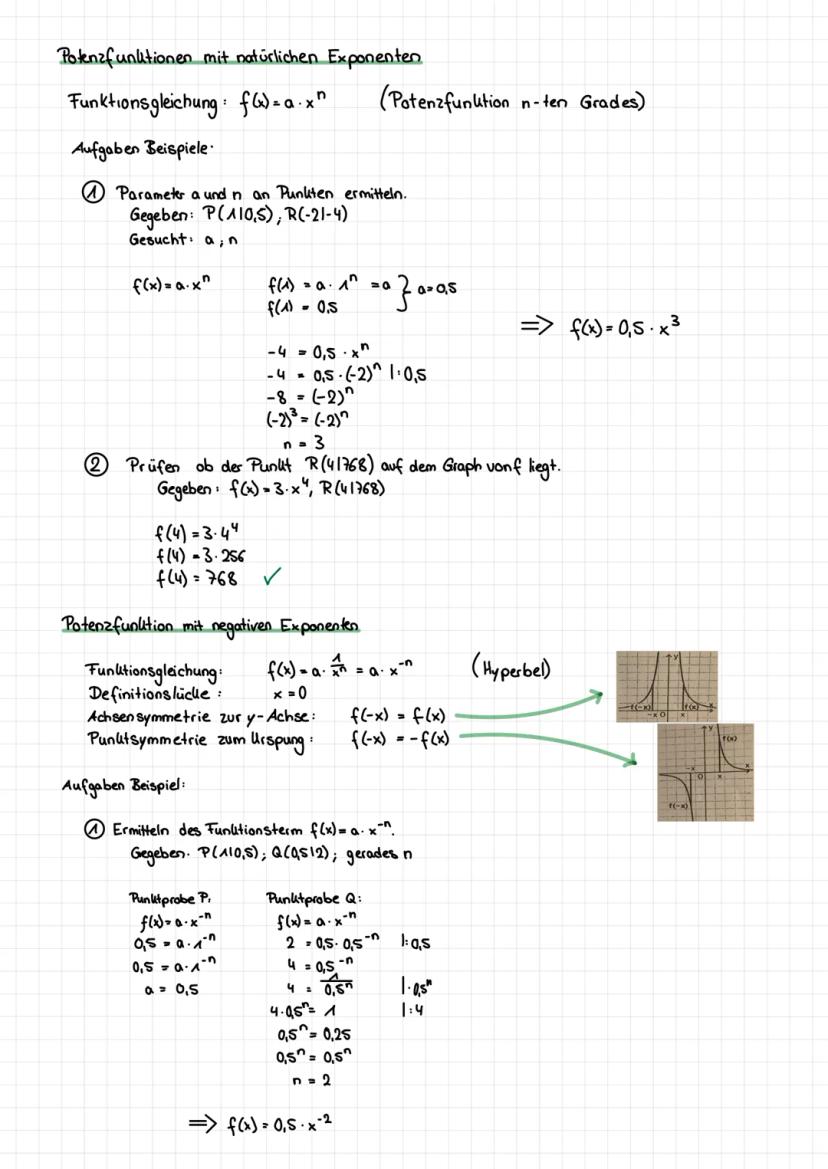 Potenzfunktionen mit natürlichen Exponenten
Funktionsgleichung: f(x) = a · xⁿ (Potenzfunktion n-ten Grades)
Aufgaben Beispiele:
① Parameter a und n an Punkten ermitteln.
Gegeben: P(1|0,5), R(-2|-4)
Gesucht: a ; n
f(x) = a · xⁿ
f(1) = a · 1ⁿ = a } a = 0,5
f(1) = 0,5
⟹ f(x) = 0,5 · x³
-4 = 0,5 · xⁿ
-4 = 0,5 · (-2)ⁿ |: 0,5
-8 = (-2)ⁿ
(-2)³ = (-2)ⁿ
n = 3
② Prüfen ob der Punkt R(4|768) auf dem Graph von f liegt.
Gegeben: f(x) = 3 · x⁴, R(4|768)
f(4) = 3 · 4⁴
f(4) = 3 · 256
f(4) = 768 ✓
Potenzfunktion mit negativen Exponenten
Funktionsgleichung: f(x) = a · 1/xⁿ = a · x⁻ⁿ (Hyperbel)
Definitionslücke : x = 0
Achsensymmetrie zur y-Achse: f(-x) = f(x)
Punktsymmetrie zum Urspung: f(-x) = -f(x)
y
f(-x) f(x) x
-x 0 x
y
f(x)
-x x
0 x
f(-x)
Aufgaben Beispiel:
① Ermitteln des Funktionsterm f(x) = a · x⁻ⁿ.
Gegeben: P(1|0,5); Q(0,5|2); gerades n
Punktprobe P:
f(x) = a · x⁻ⁿ
0,5 = a · 1⁻ⁿ
0,5 = a · 1⁻ⁿ
a = 0,5
Punktprobe Q:
f(x) = a · x⁻ⁿ
2 = 0,5 · 0,5⁻ⁿ |: 0,5
4 = 0,5⁻ⁿ
4 = 1/0,5ⁿ |· 0,5ⁿ
4 · 0,5ⁿ = 1 |: 4
0,5ⁿ = 0,25
0,5ⁿ = 0,5ⁿ
n = 2
⟹ f(x) = 0,5 · x⁻²